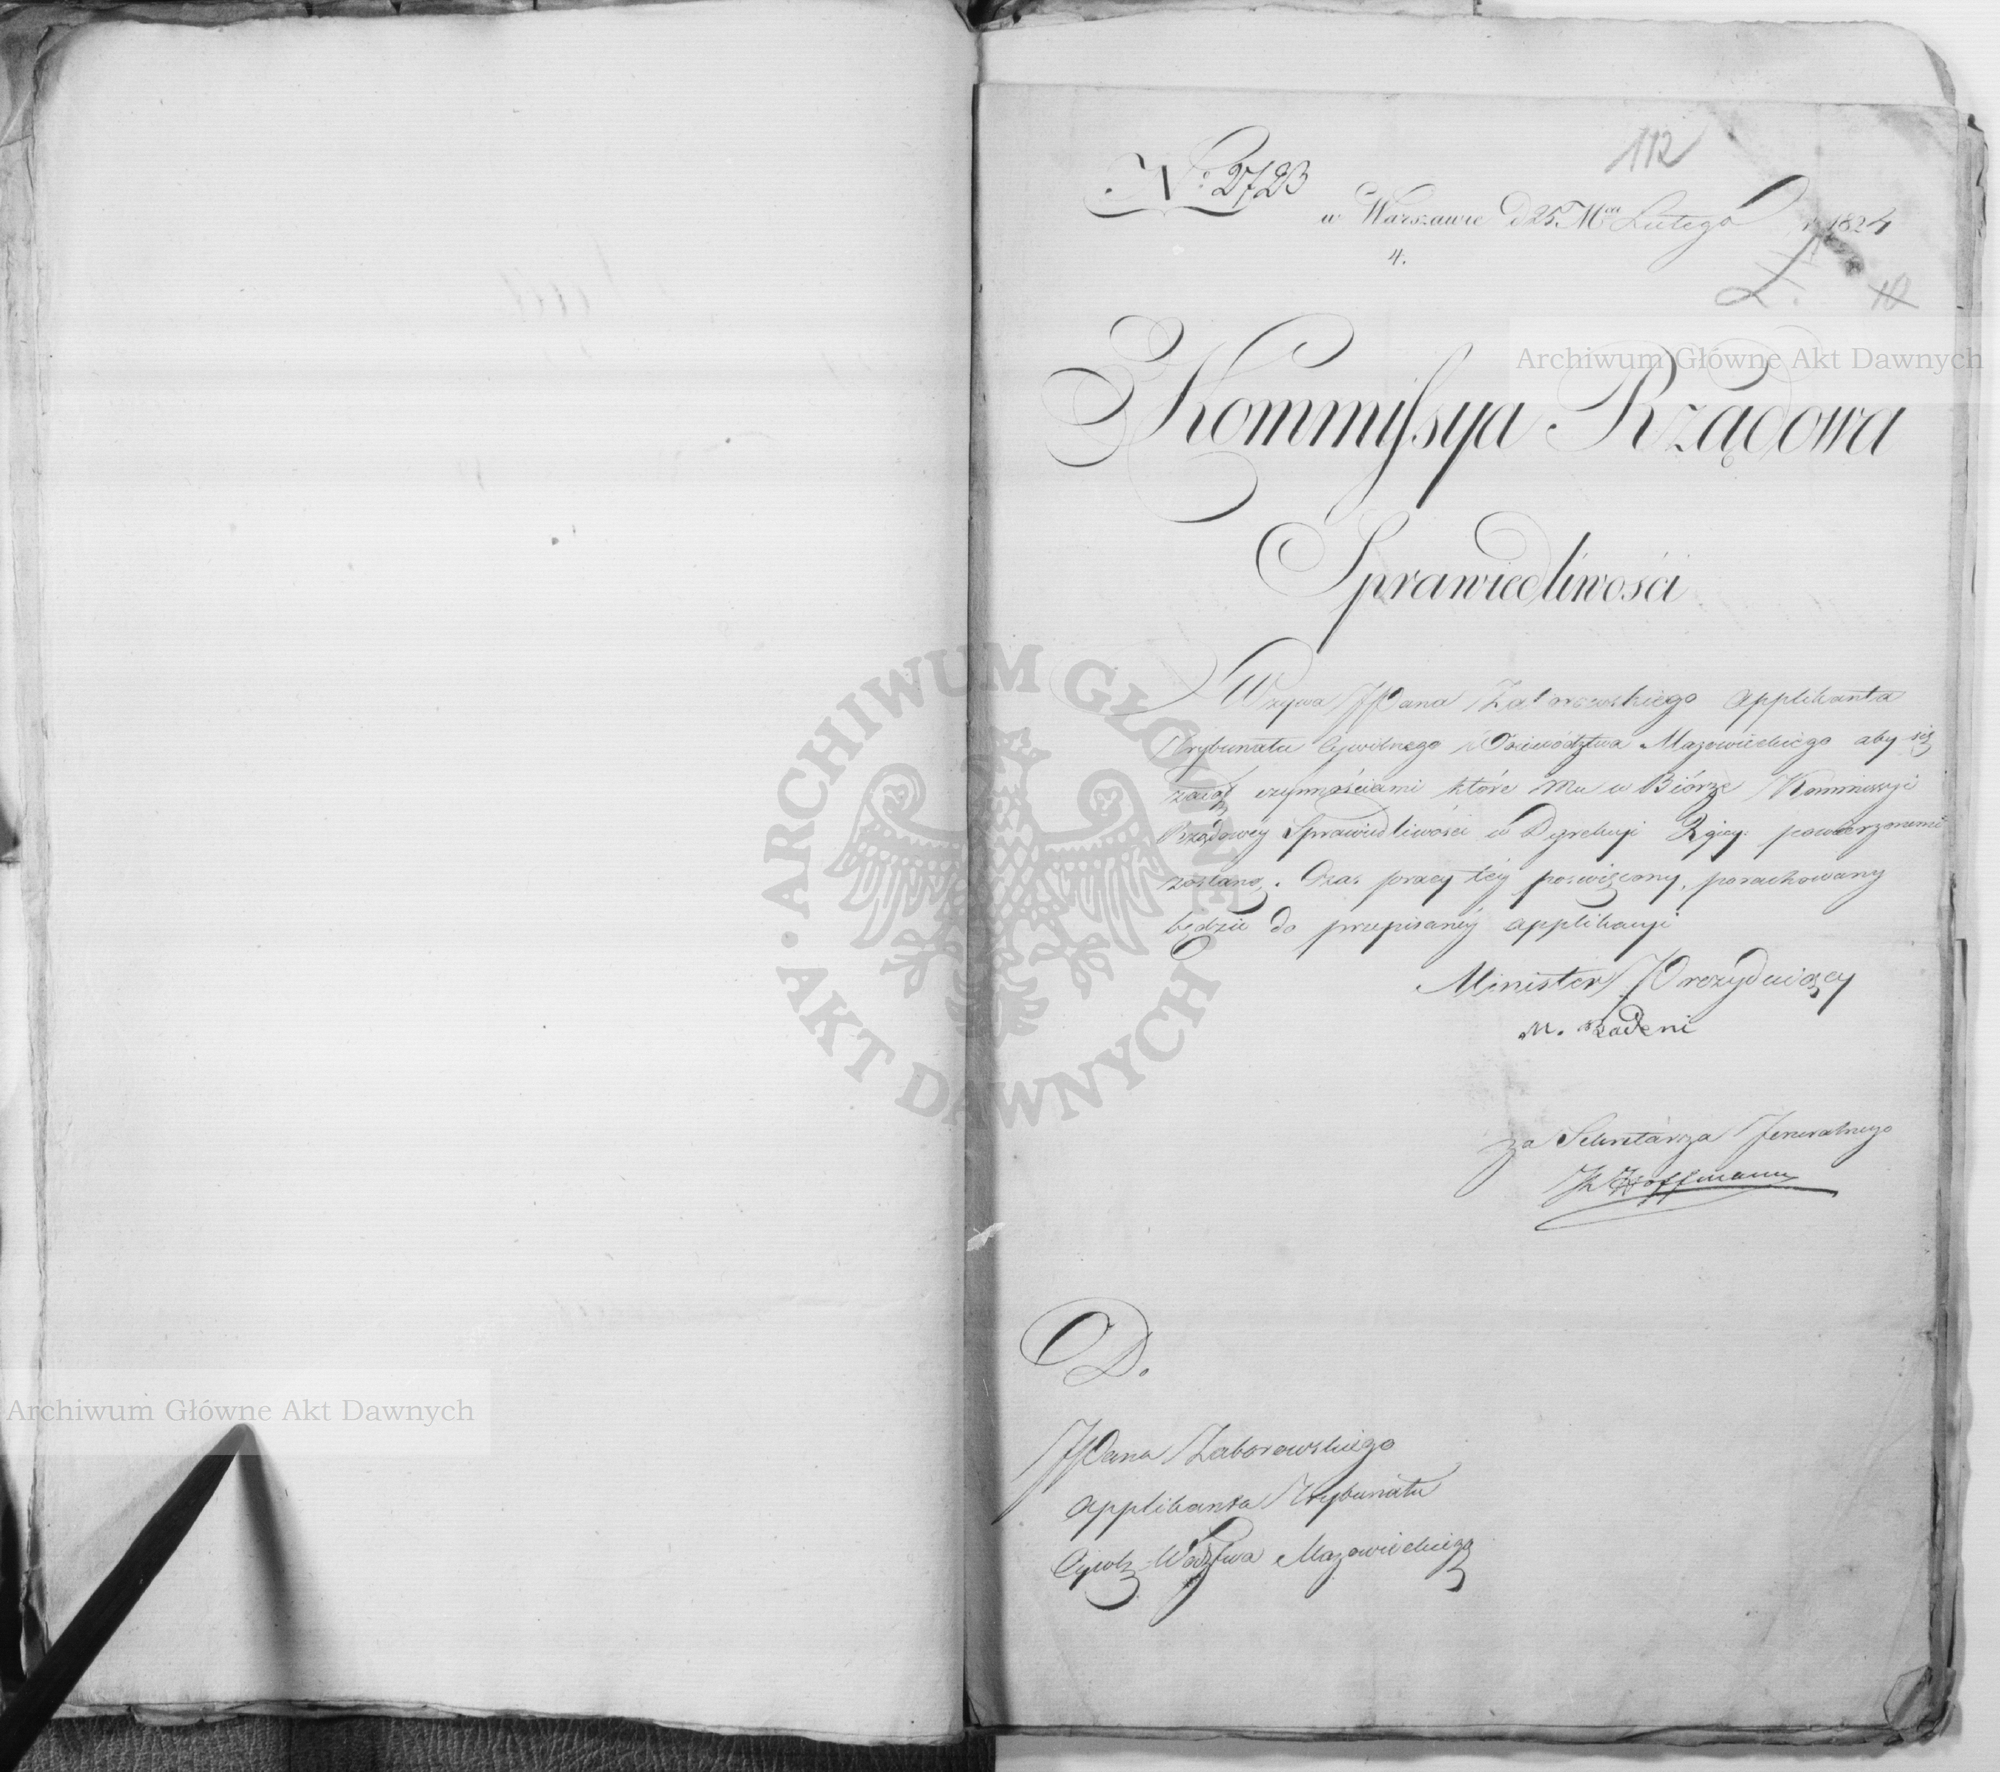 112
N<sup>o</sup> 2723
w Warszawie d 25 M<sup>ca</sup> Lutego r 1824
4.
L.
10
Kommissya Rządowa
Sprawiedliwości
Wzywa JPana Zaborowskiego Applikanta
Trybunału Cywilnego Woiewództwa Mazowieckiego aby się
zaiął czynnościami które Mu w Biórze Kommissyi
Rządowey Sprawiedliwości w Dyrekcyi powierzonemi
zostaną. Czas pracy téy poswięcony, porachowany
będzie do przepisanéy applikacyi
Minister Prezyduiący
M. Badeni
za Sekretarza Jeneralnego
K Hoffmann
D.
JPana Zaborowskiego
Applikanta Trybunału
Cywil: Wodztwa Mazowieckiego
Archiwum Główne Akt Dawnych
Archiwum Główne Akt Dawnych
ARCHIWUM GŁÓWNE
AKT DAWNYCH